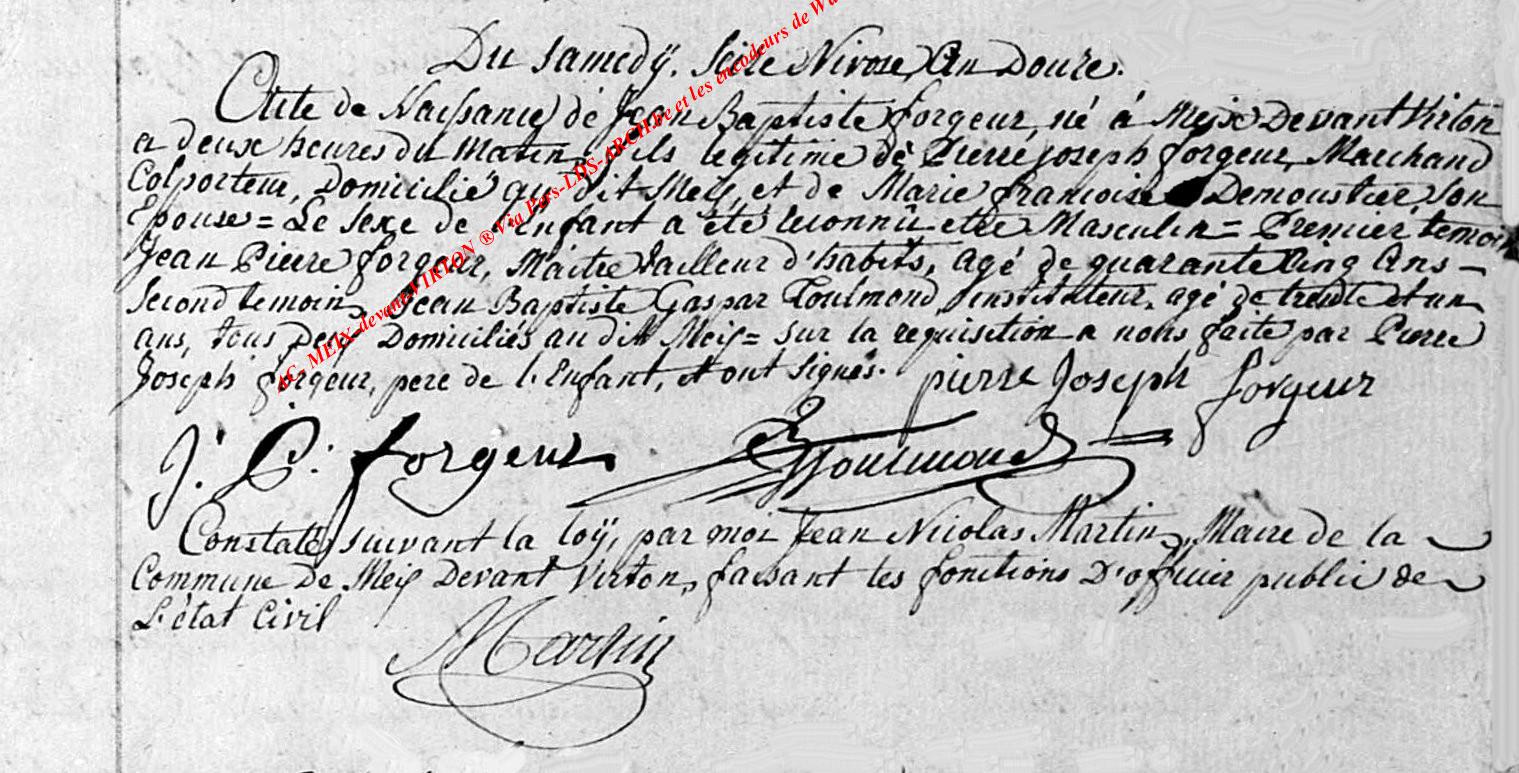 Du Samedÿ. Seize Nivose, An Douze.
Acte de Naissance de Jean Baptiste forgeur, né à Meix Devant Virton
a deux heures du Matin, fils legitime de Pierre joseph forgeur, Marchand
Colporteur, Domicilié au dit Meix, et de Marie francoise Demoustier son
Epouse = Le sexe de l'enfant a été reconnû etre Masculin = Premier temoin
Jean Pierre forgeur, Maitre tailleur d'habits, agé de quarante cinq Ans -
Second temoin, Jean Baptiste Gaspar Toulmond, instituteur, agé de trente et un
ans, tous deux Domiciliés au dit Meix = sur la requisition a nous faite par Pierre
Joseph forgeur, pere de l'Enfant, et ont signés. pierre Joseph forgeur
J. P. forgeur Toulmond
Constaté suivant la loÿ, par moi Jean Nicolas Martin, Maire de la
Commune de Meix Devant Virton, faisant les fonctions D'officier public de
L'état Civil
Martin
AC. MEIX-devant-VIRTON ® Via Pers-LDS-ARCH.be et les encodeurs de